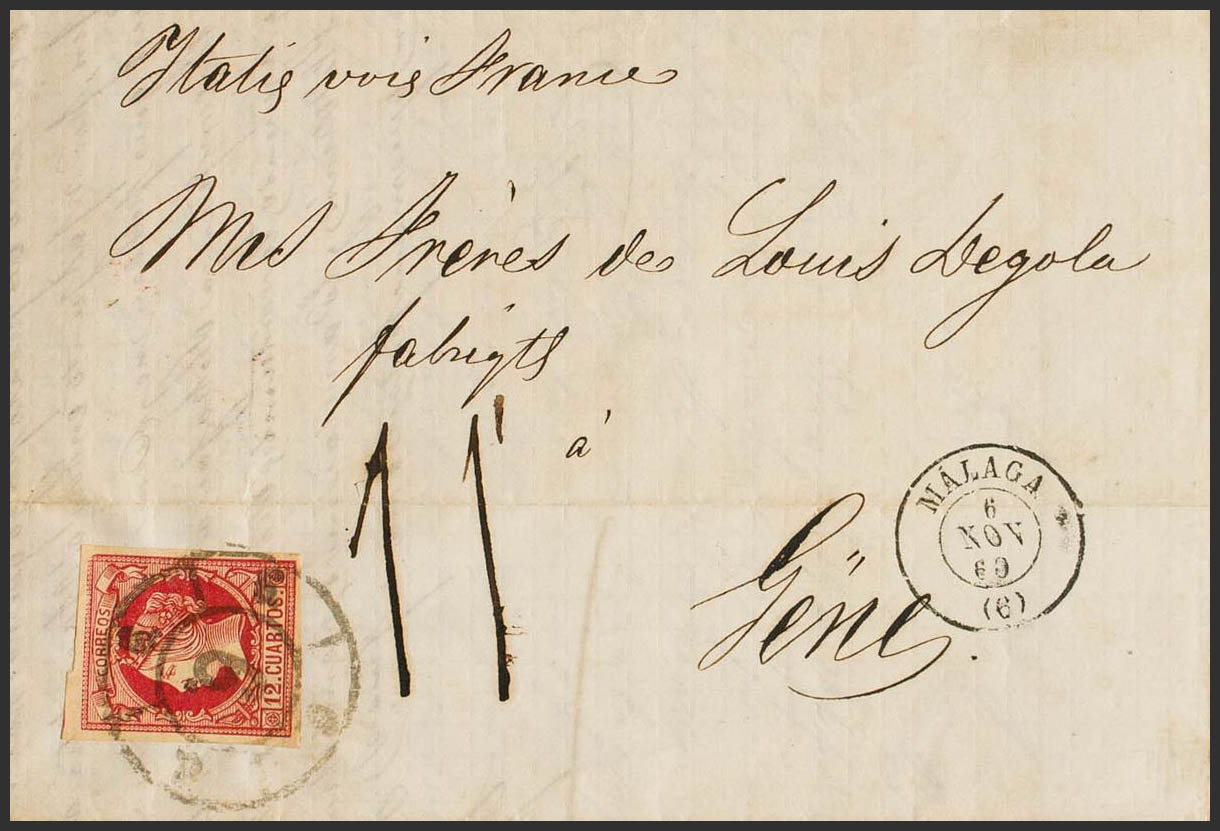 Italie voie France
Mrs Frères de Louis Degola
fabrigts
11
à
Gène.
MÁLAGA
6
NOV
60
(6)
CORREOS
12. CUARTOS.